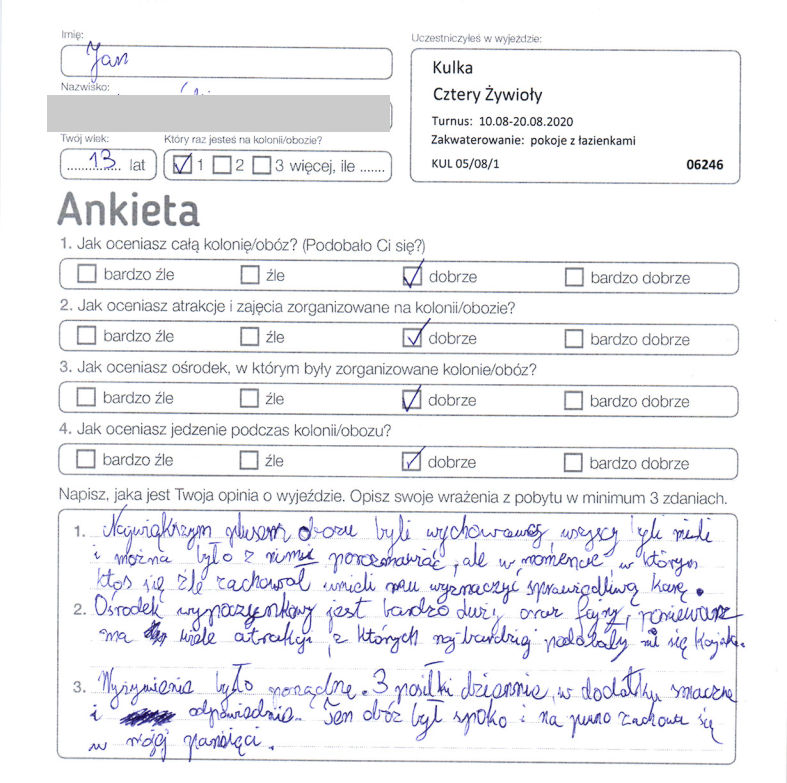 Imię:
Jan
Uczestniczyłeś w wyjeździe:
Kulka
Cztery Żywioły
Turnus: 10.08-20.08.2020
Zakwaterowanie: pokoje z łazienkami
KUL 05/08/1 06246
Nazwisko:
Twój wiek: Który raz jesteś na kolonii/obozie?
13 lat 1 2 3 więcej, ile .......
Ankieta
1. Jak oceniasz całą kolonię/obóz? (Podobało Ci się?)
bardzo źle źle dobrze bardzo dobrze
2. Jak oceniasz atrakcje i zajęcia zorganizowane na kolonii/obozie?
bardzo źle źle dobrze bardzo dobrze
3. Jak oceniasz ośrodek, w którym były zorganizowane kolonie/obóz?
bardzo źle źle dobrze bardzo dobrze
4. Jak oceniasz jedzenie podczas kolonii/obozu?
bardzo źle źle dobrze bardzo dobrze
Napisz, jaka jest Twoja opinia o wyjeździe. Opisz swoje wrażenia z pobytu w minimum 3 zdaniach.
1. Największym plusem obozu byli wychowawcy wszyscy byli mili
i można było z nimi porozmawiać, ale w momencie w którym
ktoś się źle zachował umieli mu wyznaczyć sprawiedliwą karę.
2. Ośrodek wypoczynkowy jest bardzo duży oraz fajny, ponieważ
ma wiele atrakcji, z których najbardziej podobały mi się kajaki.
3. Wyżywienie było porządne. 3 posiłki dziennie, w dodatku smaczne
i odpowiednie. Ten obóz był spoko i na pewno zachowa się
w mojej pamięci.